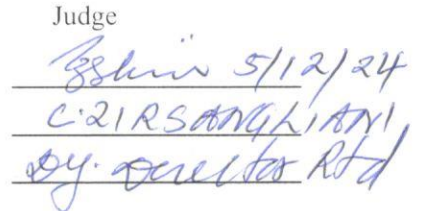 Judge
5/12/24
C. ZIRSANGLIANI
Dy. Director Rtd